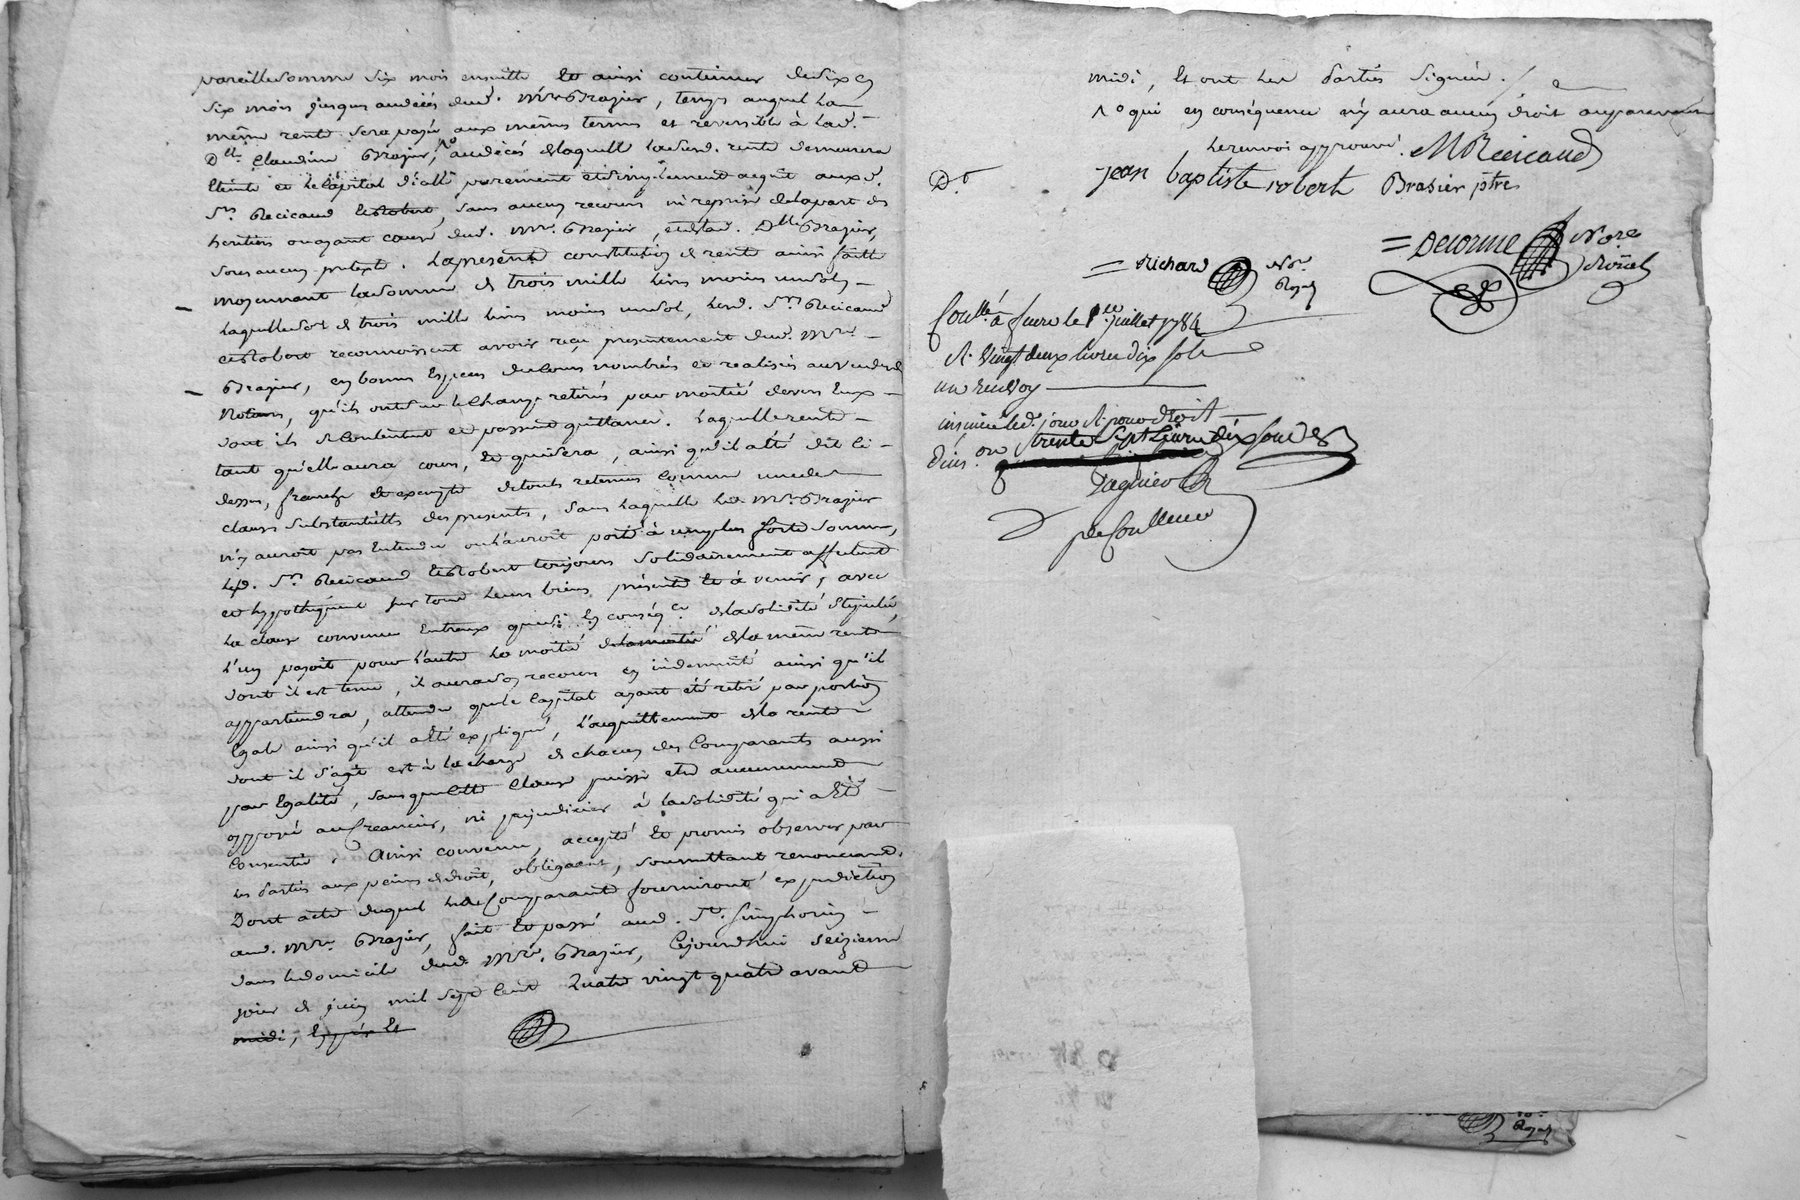 pareille somme six mois ensuitte Et ainsi continuer de six en
six mois jusques au décés dud. Mre Brazier, temps auquel la
même rente sera payée aux mêmes termes et reversible à lad.
Dlle. Claudine Brazier, au décés de laquelle lad. rente demeurera
Eteinte et le Capital d'icelle purement et simplement acquit auxd.
Srs. Recicaud et Robert, sans aucun recours ni reprise de la part des
heritiers ou ayant cause dud. Mre. Brazier, et de lad. Dlle Brazier,
sous aucun pretexte. La presente constitution de rente ainsi faitte
moyennant la somme de trois mille livres moins un sol,
laquelle so[mme] de trois mille livres moins un sol, lesd. Srs Recicaud
et Robert reconnoissent avoir reçu presentement dud. Mre
Brazier, en bonnes Especes de cours nombrées et realisées au vu desd
Notaires, qu'ils ont sur le Champ retirés par moitié devers Eux
dont ils se contentent et passent quittance. Laquelle rente
tant qu'elle aura cours, Et quisera, ainsi qu'il a été dit ci-
dessus, franche et exempte de touts retenues comme une des
clauses substantielles des presentes, sans laquelle led. Mre Brazier
n'y auroit pas Entendu ou l'auroit porté à un plus forte somme,
lesd. Srs Recicaud et Robert toujours solidairement affectent
et hypothequent sur tous leurs biens présents Et à venir, avec
la clause convenue Entreux que si En conséqce de la solidité stipulée,
l'un payoit pour l'autre la moitié de la moitié de la même rente
dont il est tenu, il aura son recours en indemnité ainsi qu'il
appartiendra, attendu que le Capital ayant été retiré par portion
Egale ainsi qu'il a Eté expliqué, l'acquittement de la rente
dont il s'agit est à la charge de chacun des Comparants aussi
par Egalité, sans que cette Clause puisse etre aucunement
opposé au Creancier, ni prejudicier à la solidité qui a Eté
Consentie. Ainsi convenu, accepté Et promis observer par
les parties aux peines de droit, obligeant, soumettant renonceant.
Dont acte duquel lesd. Comparants fourniront expedition
aud. Mre. Brazier, fait Et passé aud. St. Simphorien
dans le domicile dud. Mre. Brazier, Cejourd'hui seizieme
jour de juin mil sept Cent Quatre vingt quatre avant
midi, 
midi, Et ont les parties signé.
No qui en conséquence n'y aura aucun droit auparavant
le renvoi approuvé. M Recicaud
jean baptiste robert Brasier ptre
Delorme Nore Roial
Richard Nre Royal
Conllé à feurs le 1er juillet 1784
R. vingt deux livres dix sols
un renvoy
insinué led. jour R. pour droit
d'ins.on trente sept livres dix sols